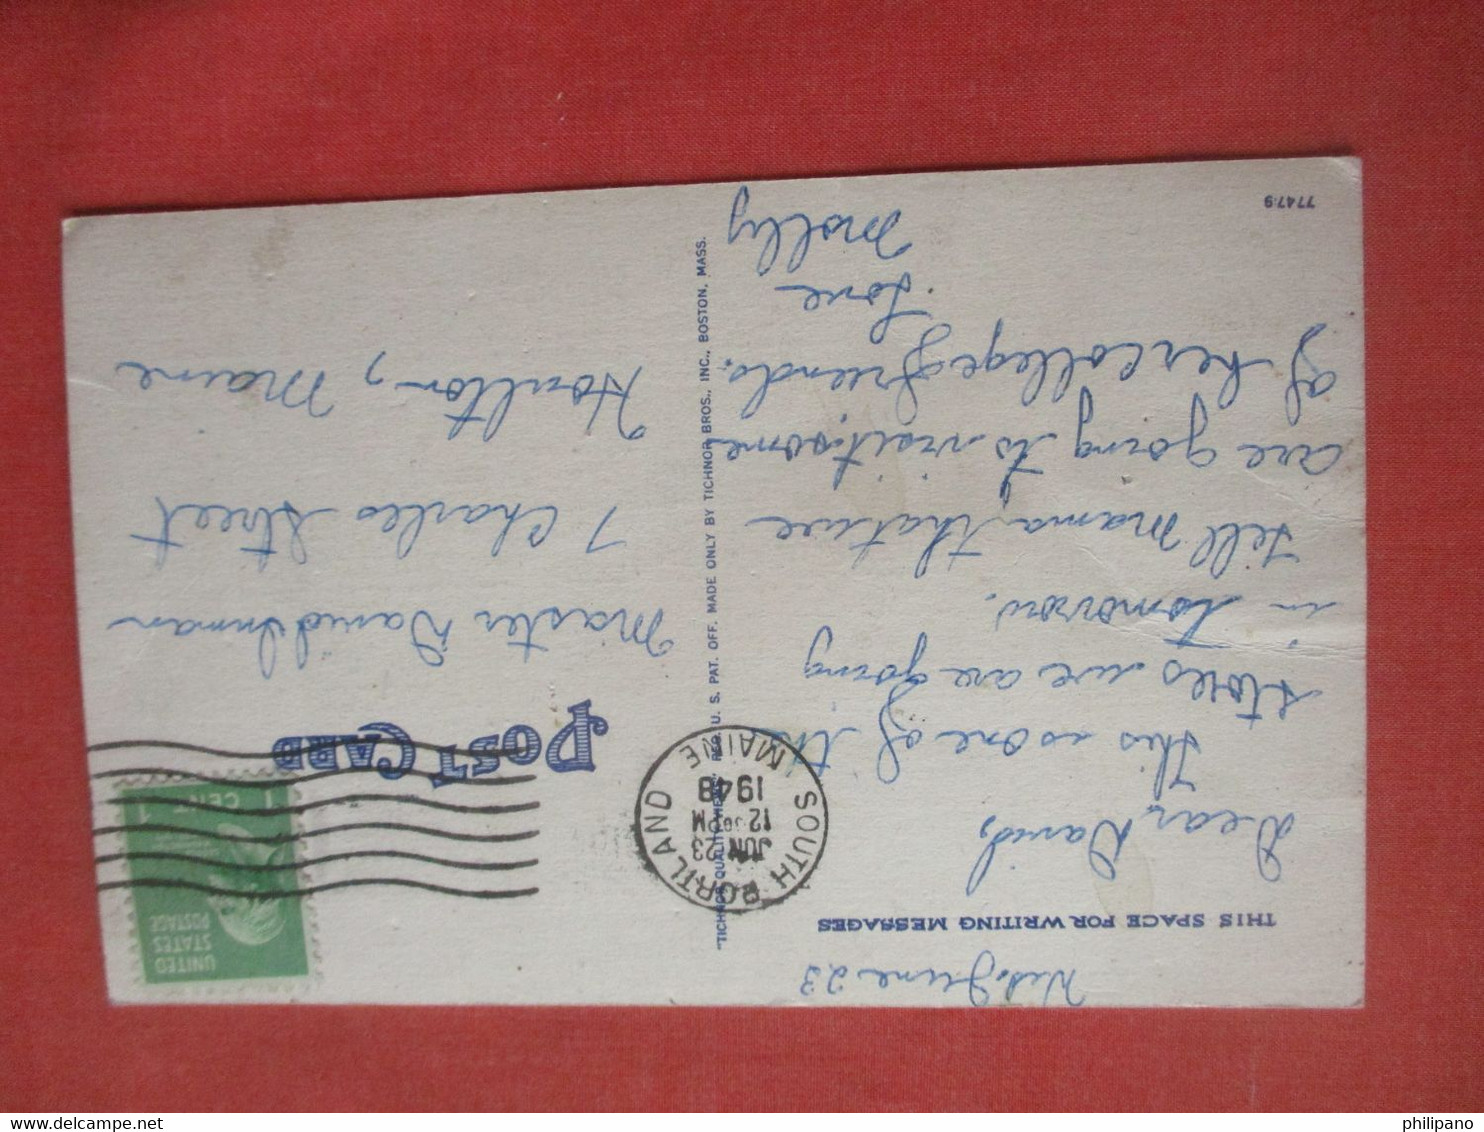 Wed. June 23
THIS SPACE FOR WRITING MESSAGES
Dear David,
This is one of the
stores we are going
in tomorrow.
Tell Mama that we
are going to visit some
of her college friends.
Love
Molly
77479
"TICHNOR QUALITY VIEWS," REG. U. S. PAT. OFF. MADE ONLY BY TICHNOR BROS., INC., BOSTON, MASS.
SOUTH PORTLAND
JUN 23
12 30 PM
1948
MAINE
UNITED
STATES
POSTAGE
1 CENT 1
POST CARD
Master David Inman
7 Charles Street
Houlton, Maine
delcampe.net
philipano